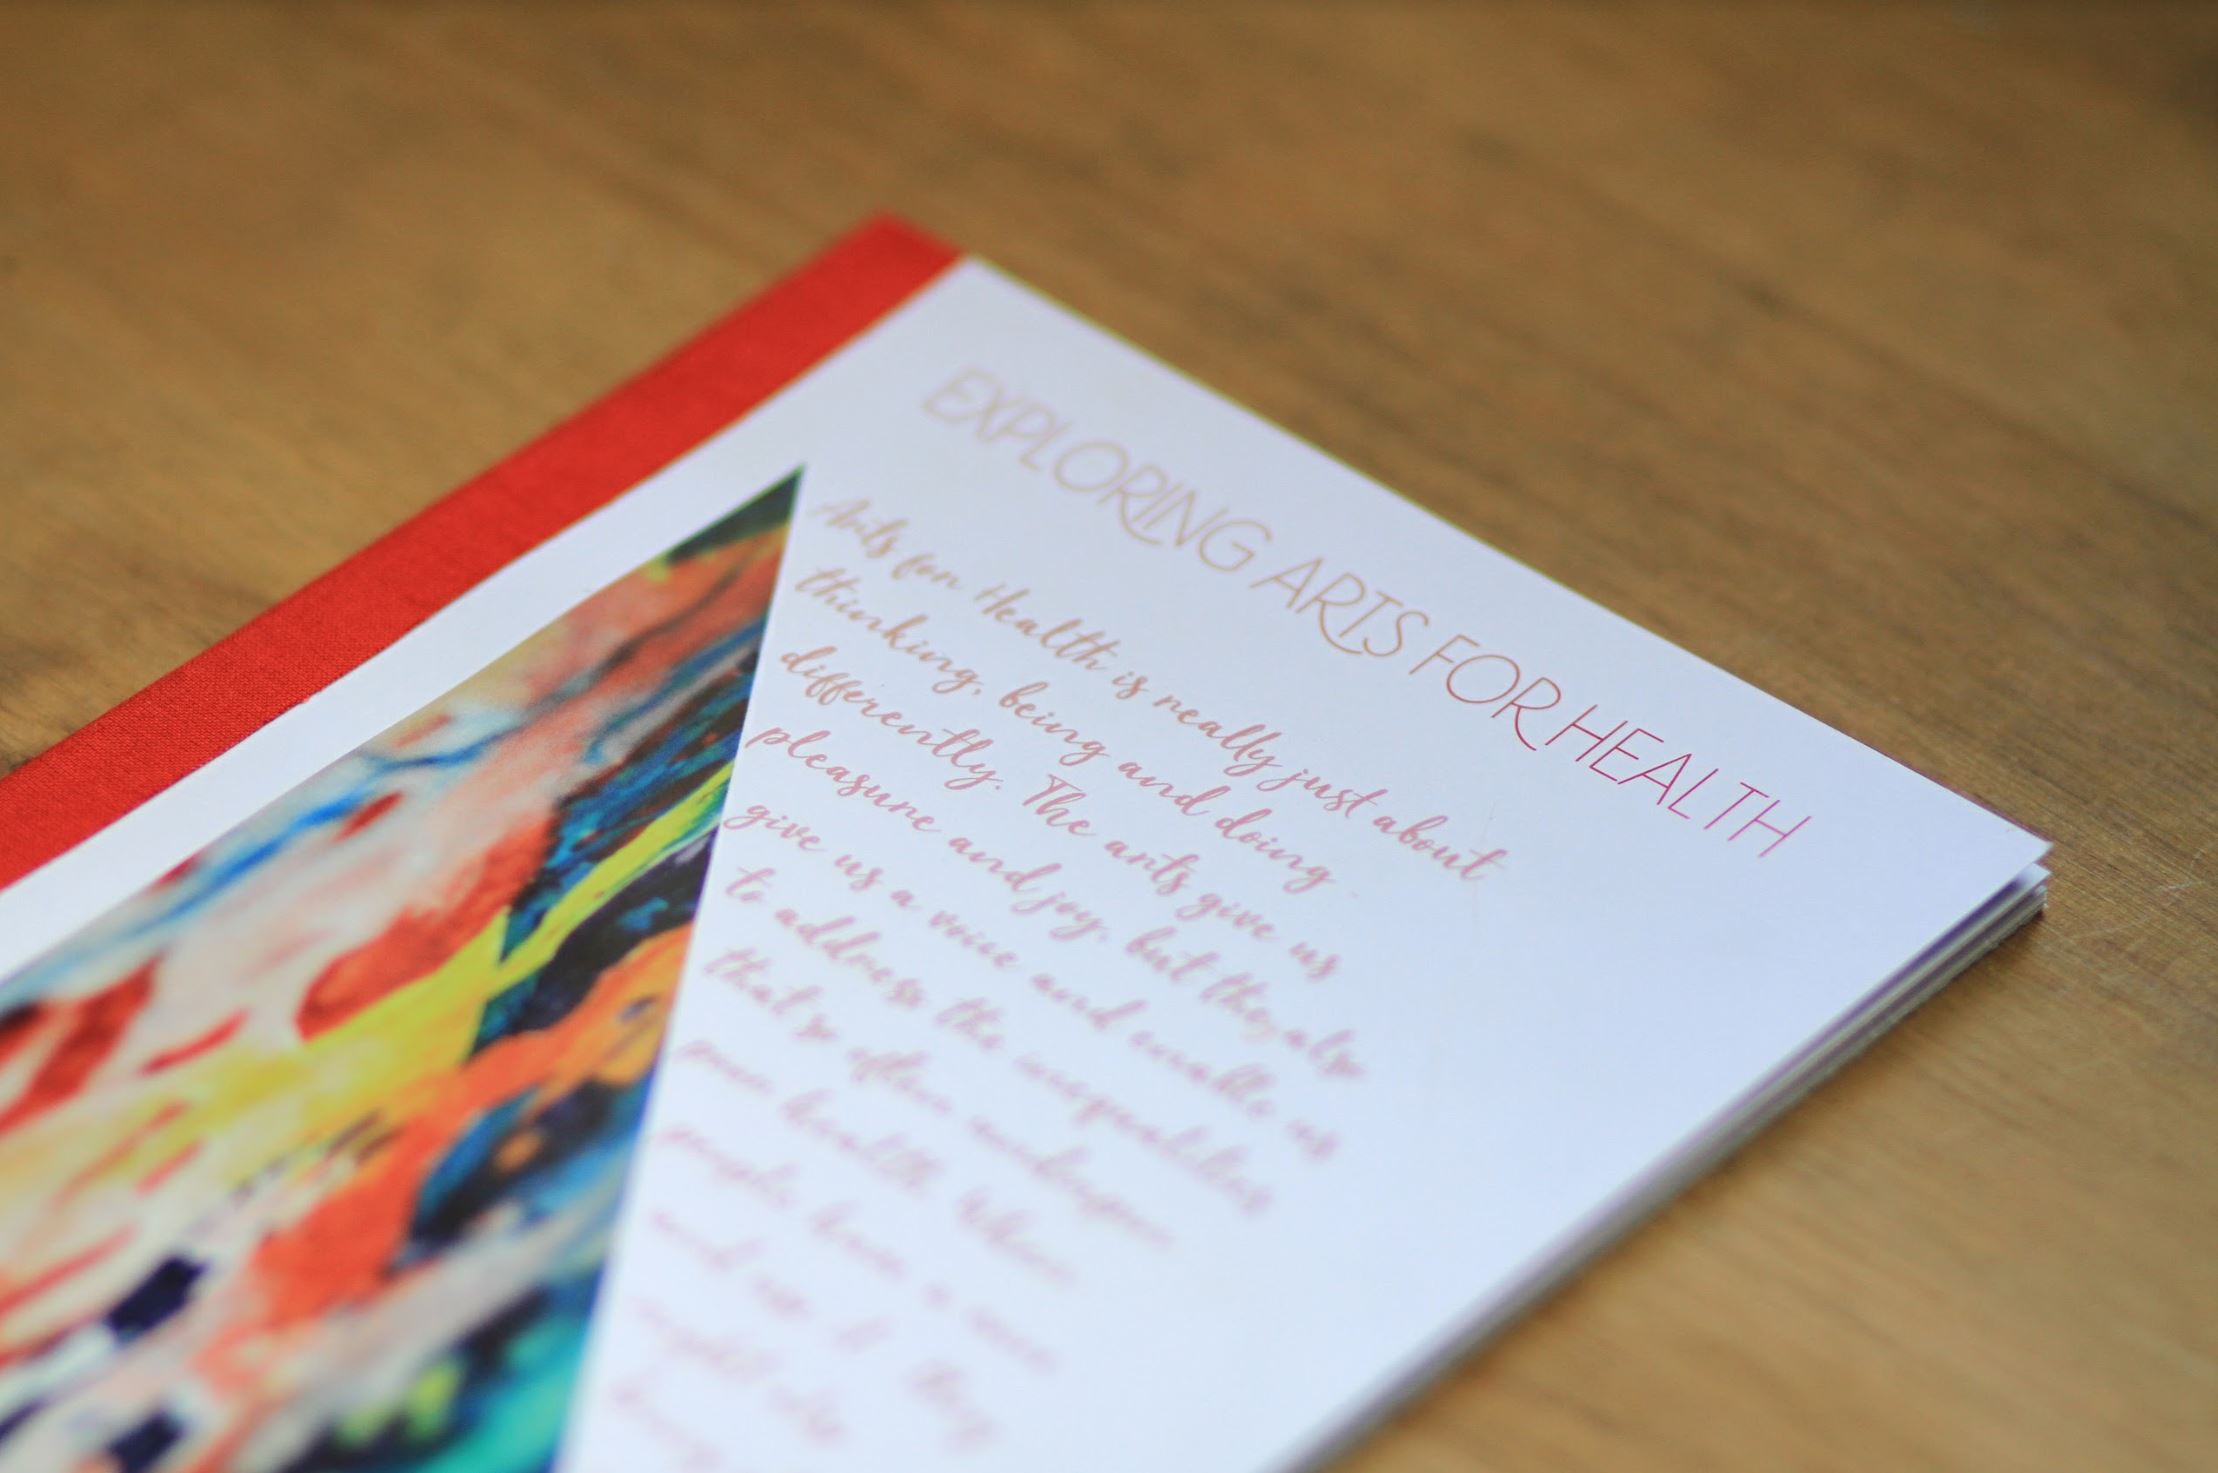 EXPLORING ARTS FOR HEALTH
Arts for Health is really just about
thinking, being and doing
differently. The arts give us
pleasure and joy, but they also
give us a voice and enable us
to address the inequalities
that so often underpin
poor health. When
people have a voice
and use it, they
might also